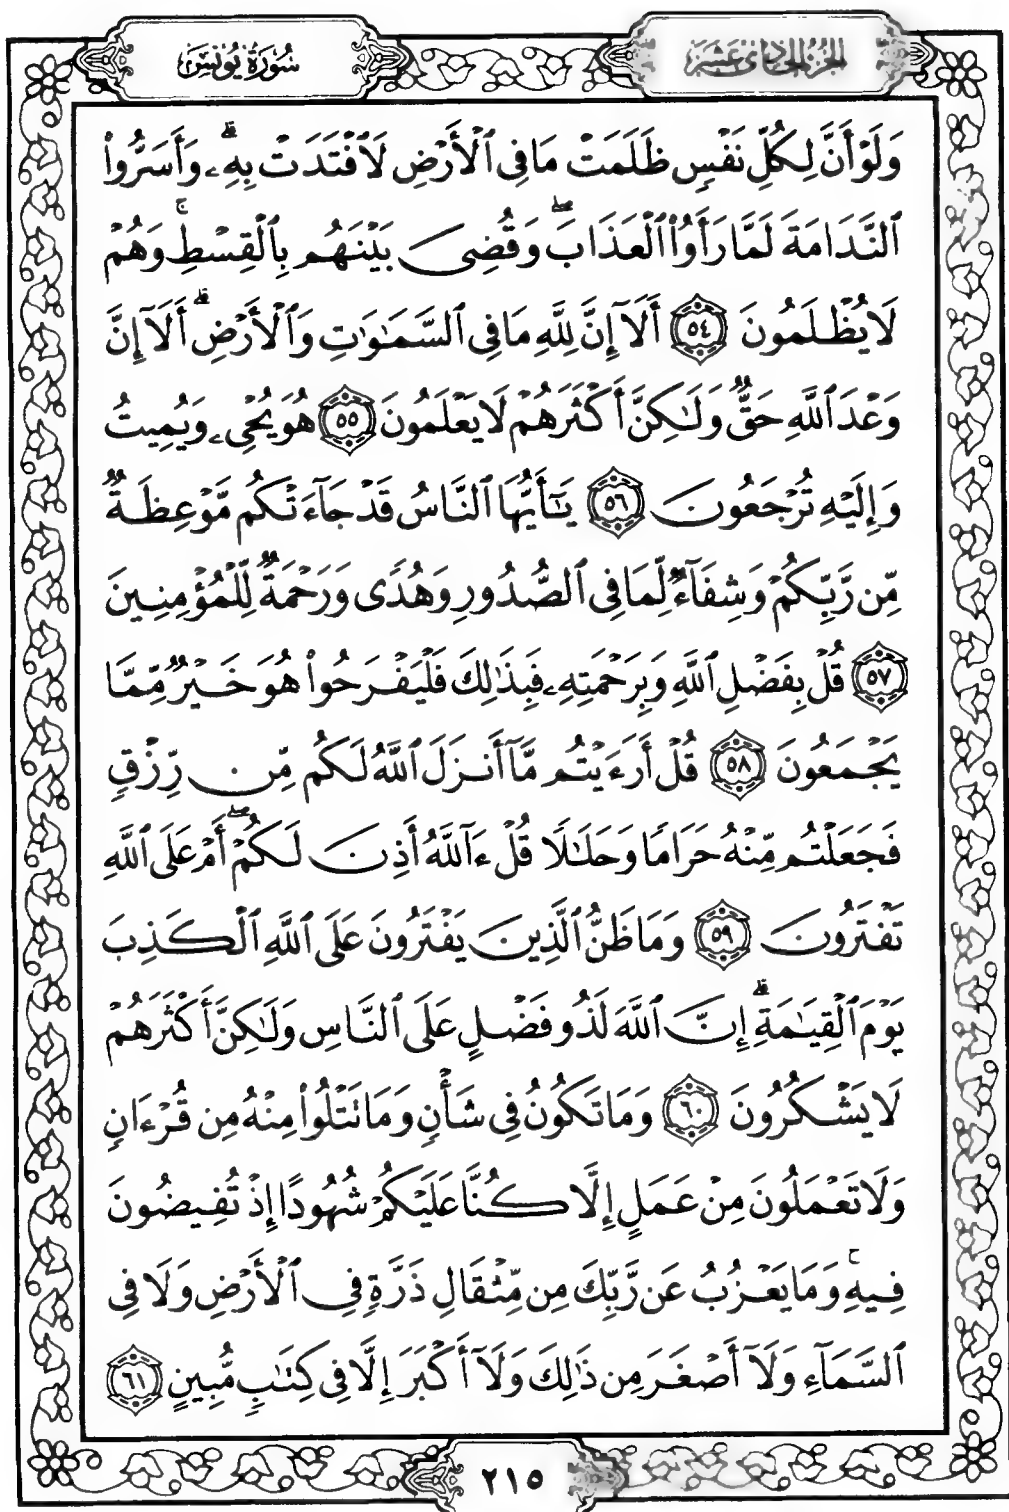 الجزء الحادي عشر
سورة يونس
وَلَوْ أَنَّ لِكُلِّ نَفْسٍ ظَلَمَتْ مَا فِي ٱلْأَرْضِ لَٱفْتَدَتْ بِهِۦۗ وَأَسَرُّوا۟
ٱلنَّدَامَةَ لَمَّا رَأَوُا۟ ٱلْعَذَابَۖ وَقُضِيَ بَيْنَهُم بِٱلْقِسْطِۚ وَهُمْ
لَا يُظْلَمُونَ ٥٤ أَلَآ إِنَّ لِلَّهِ مَا فِي ٱلسَّمَٰوَٰتِ وَٱلْأَرْضِۗ أَلَآ إِنَّ
وَعْدَ ٱللَّهِ حَقٌّ وَلَٰكِنَّ أَكْثَرَهُمْ لَا يَعْلَمُونَ ٥٥ هُوَ يُحْيِۦ وَيُمِيتُ
وَإِلَيْهِ تُرْجَعُونَ ٥٦ يَٰٓأَيُّهَا ٱلنَّاسُ قَدْ جَآءَتْكُم مَّوْعِظَةٌ
مِّن رَّبِّكُمْ وَشِفَآءٌ لِّمَا فِي ٱلصُّدُورِ وَهُدًى وَرَحْمَةٌ لِّلْمُؤْمِنِينَ
٥٧ قُلْ بِفَضْلِ ٱللَّهِ وَبِرَحْمَتِهِۦ فَبِذَٰلِكَ فَلْيَفْرَحُوا۟ هُوَ خَيْرٌ مِّمَّا
يَجْمَعُونَ ٥٨ قُلْ أَرَءَيْتُم مَّآ أَنزَلَ ٱللَّهُ لَكُم مِّن رِّزْقٍ
فَجَعَلْتُم مِّنْهُ حَرَامًا وَحَلَٰلًا قُلْ ءَآللَّهُ أَذِنَ لَكُمْۖ أَمْ عَلَى ٱللَّهِ
تَفْتَرُونَ ٥٩ وَمَا ظَنُّ ٱلَّذِينَ يَفْتَرُونَ عَلَى ٱللَّهِ ٱلْكَذِبَ
يَوْمَ ٱلْقِيَٰمَةِۗ إِنَّ ٱللَّهَ لَذُو فَضْلٍ عَلَى ٱلنَّاسِ وَلَٰكِنَّ أَكْثَرَهُمْ
لَا يَشْكُرُونَ ٦٠ وَمَا تَكُونُ فِي شَأْنٍ وَمَا تَتْلُوا۟ مِنْهُ مِن قُرْءَانٍ
وَلَا تَعْمَلُونَ مِنْ عَمَلٍ إِلَّا كُنَّا عَلَيْكُمْ شُهُودًا إِذْ تُفِيضُونَ
فِيهِۚ وَمَا يَعْزُبُ عَن رَّبِّكَ مِن مِّثْقَالِ ذَرَّةٍ فِي ٱلْأَرْضِ وَلَا فِي
ٱلسَّمَآءِ وَلَآ أَصْغَرَ مِن ذَٰلِكَ وَلَآ أَكْبَرَ إِلَّا فِي كِتَٰبٍ مُّبِينٍ ٦١
٢١٥